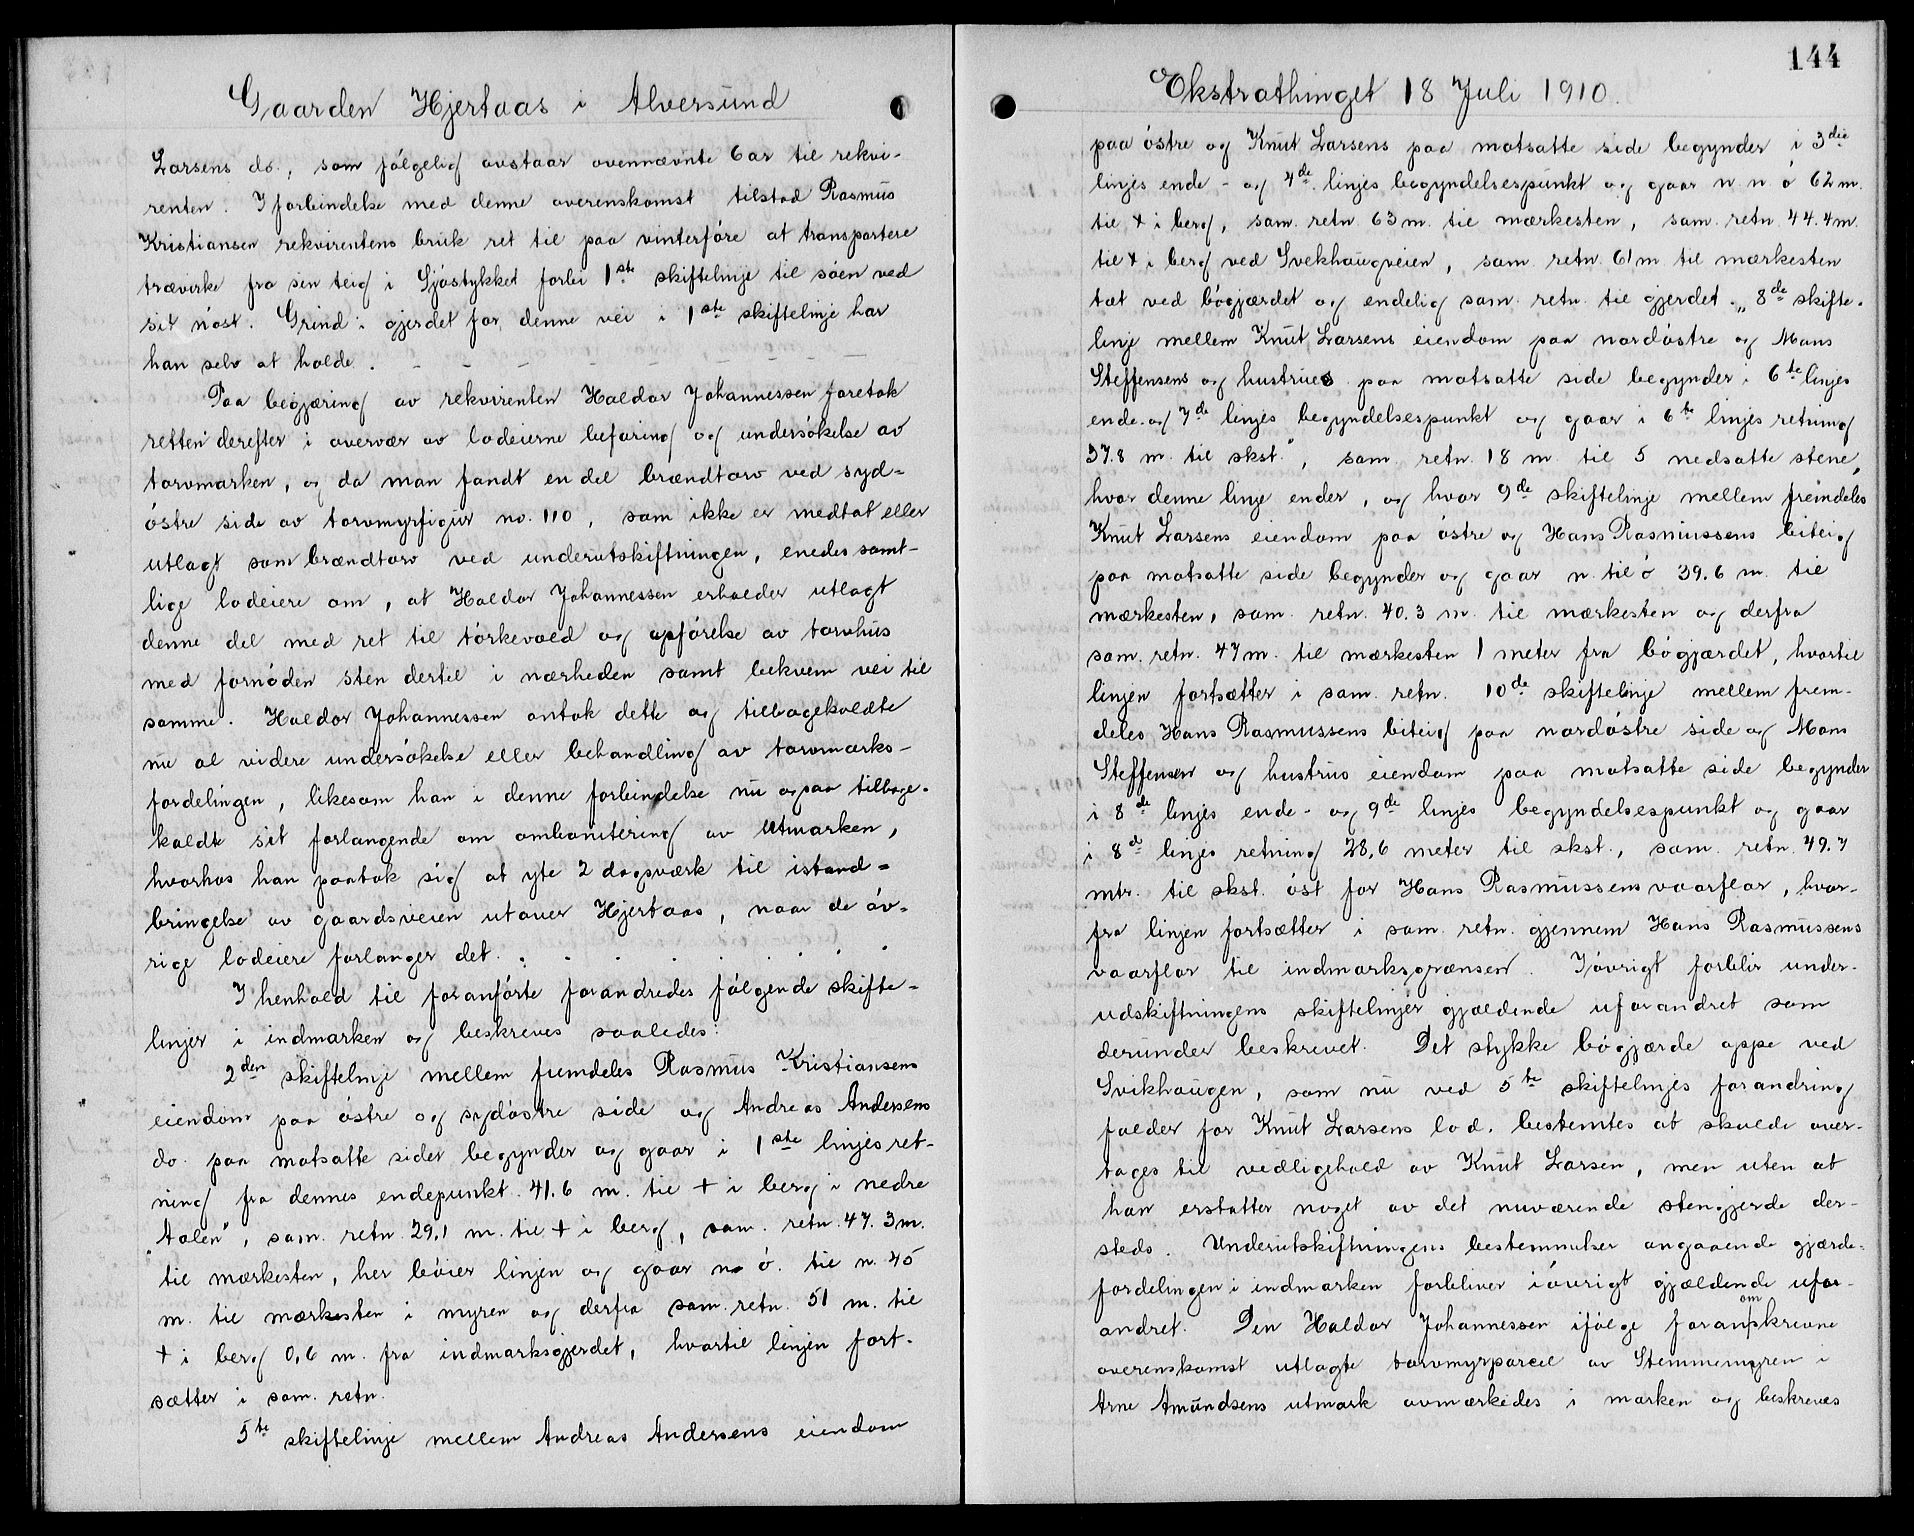 Gaarden Hjertaas i Alversund
Larsens do., som følgelig avstaar ovennævnte 6 ar til rekvi-
renten. I forbindelse med denne overenskomst tilstod Rasmus
Kristiansen rekvirentens bruk ret til paa vinterføre at transportere
trævirke fra sin teig i Sjøstykket forbi 1ste skiftelinje til søen ved
sit nøst. Grind i gjerdet for denne vei i 1ste skiftelinje har
han selv at holde.
Paa begjæring av rekvirenten Haldor Johannessen foretok
retten derefter i overvær av lodeierne befaring og undersøkelse av
torvmarken, og da man fandt en del brændtorv ved syd-
østre side av torvmyrfigur no. 110, som ikke er medtat eller
utlagt som brændtorv ved underutskiftningen, enedes samt-
lige lodeiere om, at Haldor Johannessen erholder utlagt
denne del med ret til tørkevold og opførelse av torvhus
med fornøden sten dertil i nærheden samt bekvem vei til
samme. Haldor Johannessen antok dette og tilbagekaldte
nu al videre undersøkelse eller behandling av torvmarks-
fordelingen, likesom han i denne forbindelse nu ogsaa tilbage-
kaldte sit forlangende om ombonitering av utmarken,
hvorhos han paatok sig at yte 2 dagsværk til istand-
bringelse av gaardsveien utover Hjertaas, naar de øv-
rige lodeiere forlanger det.
I henhold til foranførte forandredes følgende skifte-
linjer i indmarken og beskreves saaledes:
2den skiftelinje mellem fremdeles Rasmus Kristiansens
eiendom paa østre og sydøstre side og Andreas Andersens
do. paa motsatte sider begynder og gaar i 1ste linjes ret-
ning fra dennes endepunkt 41.6 m. til + i berg i nedre
"Aalen", sam. retn. 29,1 m. til + i berg, sam. retn. 47.3 m.
til mærkesten, her bøier linjen og gaar n. ø. til n. 45
m. til mærkesten i myren og derfra sam. retn. 51 m. til
+ i berg 0,6 m. fra indmarksgjerdet, hvortil linjen fort-
sætter i sam. retn.
5te skiftelinje mellem Andreas Andersens eiendom
144
Ekstrathinget 18 Juli 1910.
paa østre og Knut Larsens paa motsatte side begynder i 3die
linjes ende - og 4de linjes begyndelsespunkt og gaar n. n. ø 62 m.
til + i berg, sam. retn. 63 m. til mærkesten, sam. retn. 44.4 m.
til + i berg ved Svekhaugveien, sam. retn. 61 m. til mærkesten
tæt ved bøgjærdet og endelig sam. retn. til gjerdet. „ 8de skifte-
linje mellem Knut Larsens eiendom paa nordøstre og Mons
Steffensens og hustrues paa motsatte side begynder i 6te linjes
ende- og 7de linjes begyndelsespunkt og gaar i 6te linjes retning
37.8 m. til skst.", sam. retn. 18 m. til 5 nedsatte stene,
hvor denne linje ender, og hvor 9de skiftelinje mellem fremdeles
Knut Larsens eiendom paa østre og Hans Rasmussens biteig
paa motsatte side begynder og gaar n. til ø 39.6 m. til
mærkesten, sam. retn. 40.3 m. til mærkesten og derfra
sam. retn. 47 m. til mærkesten 1 meter fra bøgjærdet, hvortil
linjen fortsætter i sam. retn. 10de skiftelinje mellem frem-
deles Hans Rasmussens biteig paa nordøstre side og Mons
Steffensen og hustrus eiendom paa motsatte side begynder
i 8de linjes ende- og 9de linjes begyndelsespunkt og gaar
i 8de linjes retning 28,6 meter til skst., sam. retn. 49.7
mtr. til skst. øst for Hans Rasmussens vaarflor, hvor-
fra linjen fortsætter i sam. retn. gjennem Hans Rasmussens
vaarflor til indmarksgrænsen. Iøvrigt forblir under-
udskiftningens skiftelinjer gjældende uforandret som
derunder beskrevet. Det stykke bøgjærde oppe ved
Svikhaugen, som nu ved 5te skiftelinjes forandring
falder for Knut Larsens lod, bestemtes at skulde over-
tages til vedligehold av Knut Larsen, men uten at
han erstatter noget av det nuværende stengjerde der-
steds. Underutskiftningens bestemmelser angaaende gjærde-
fordelingen i indmarken forbliver iøvrigt gjældende ufor-
andret. Den Haldor Johannessen ifølge foranomskrevne
overenskomst utlagte torvmyrparcel av Stemmemyren i
Arne Amundsens utmark avmærkedes i marken og beskreves